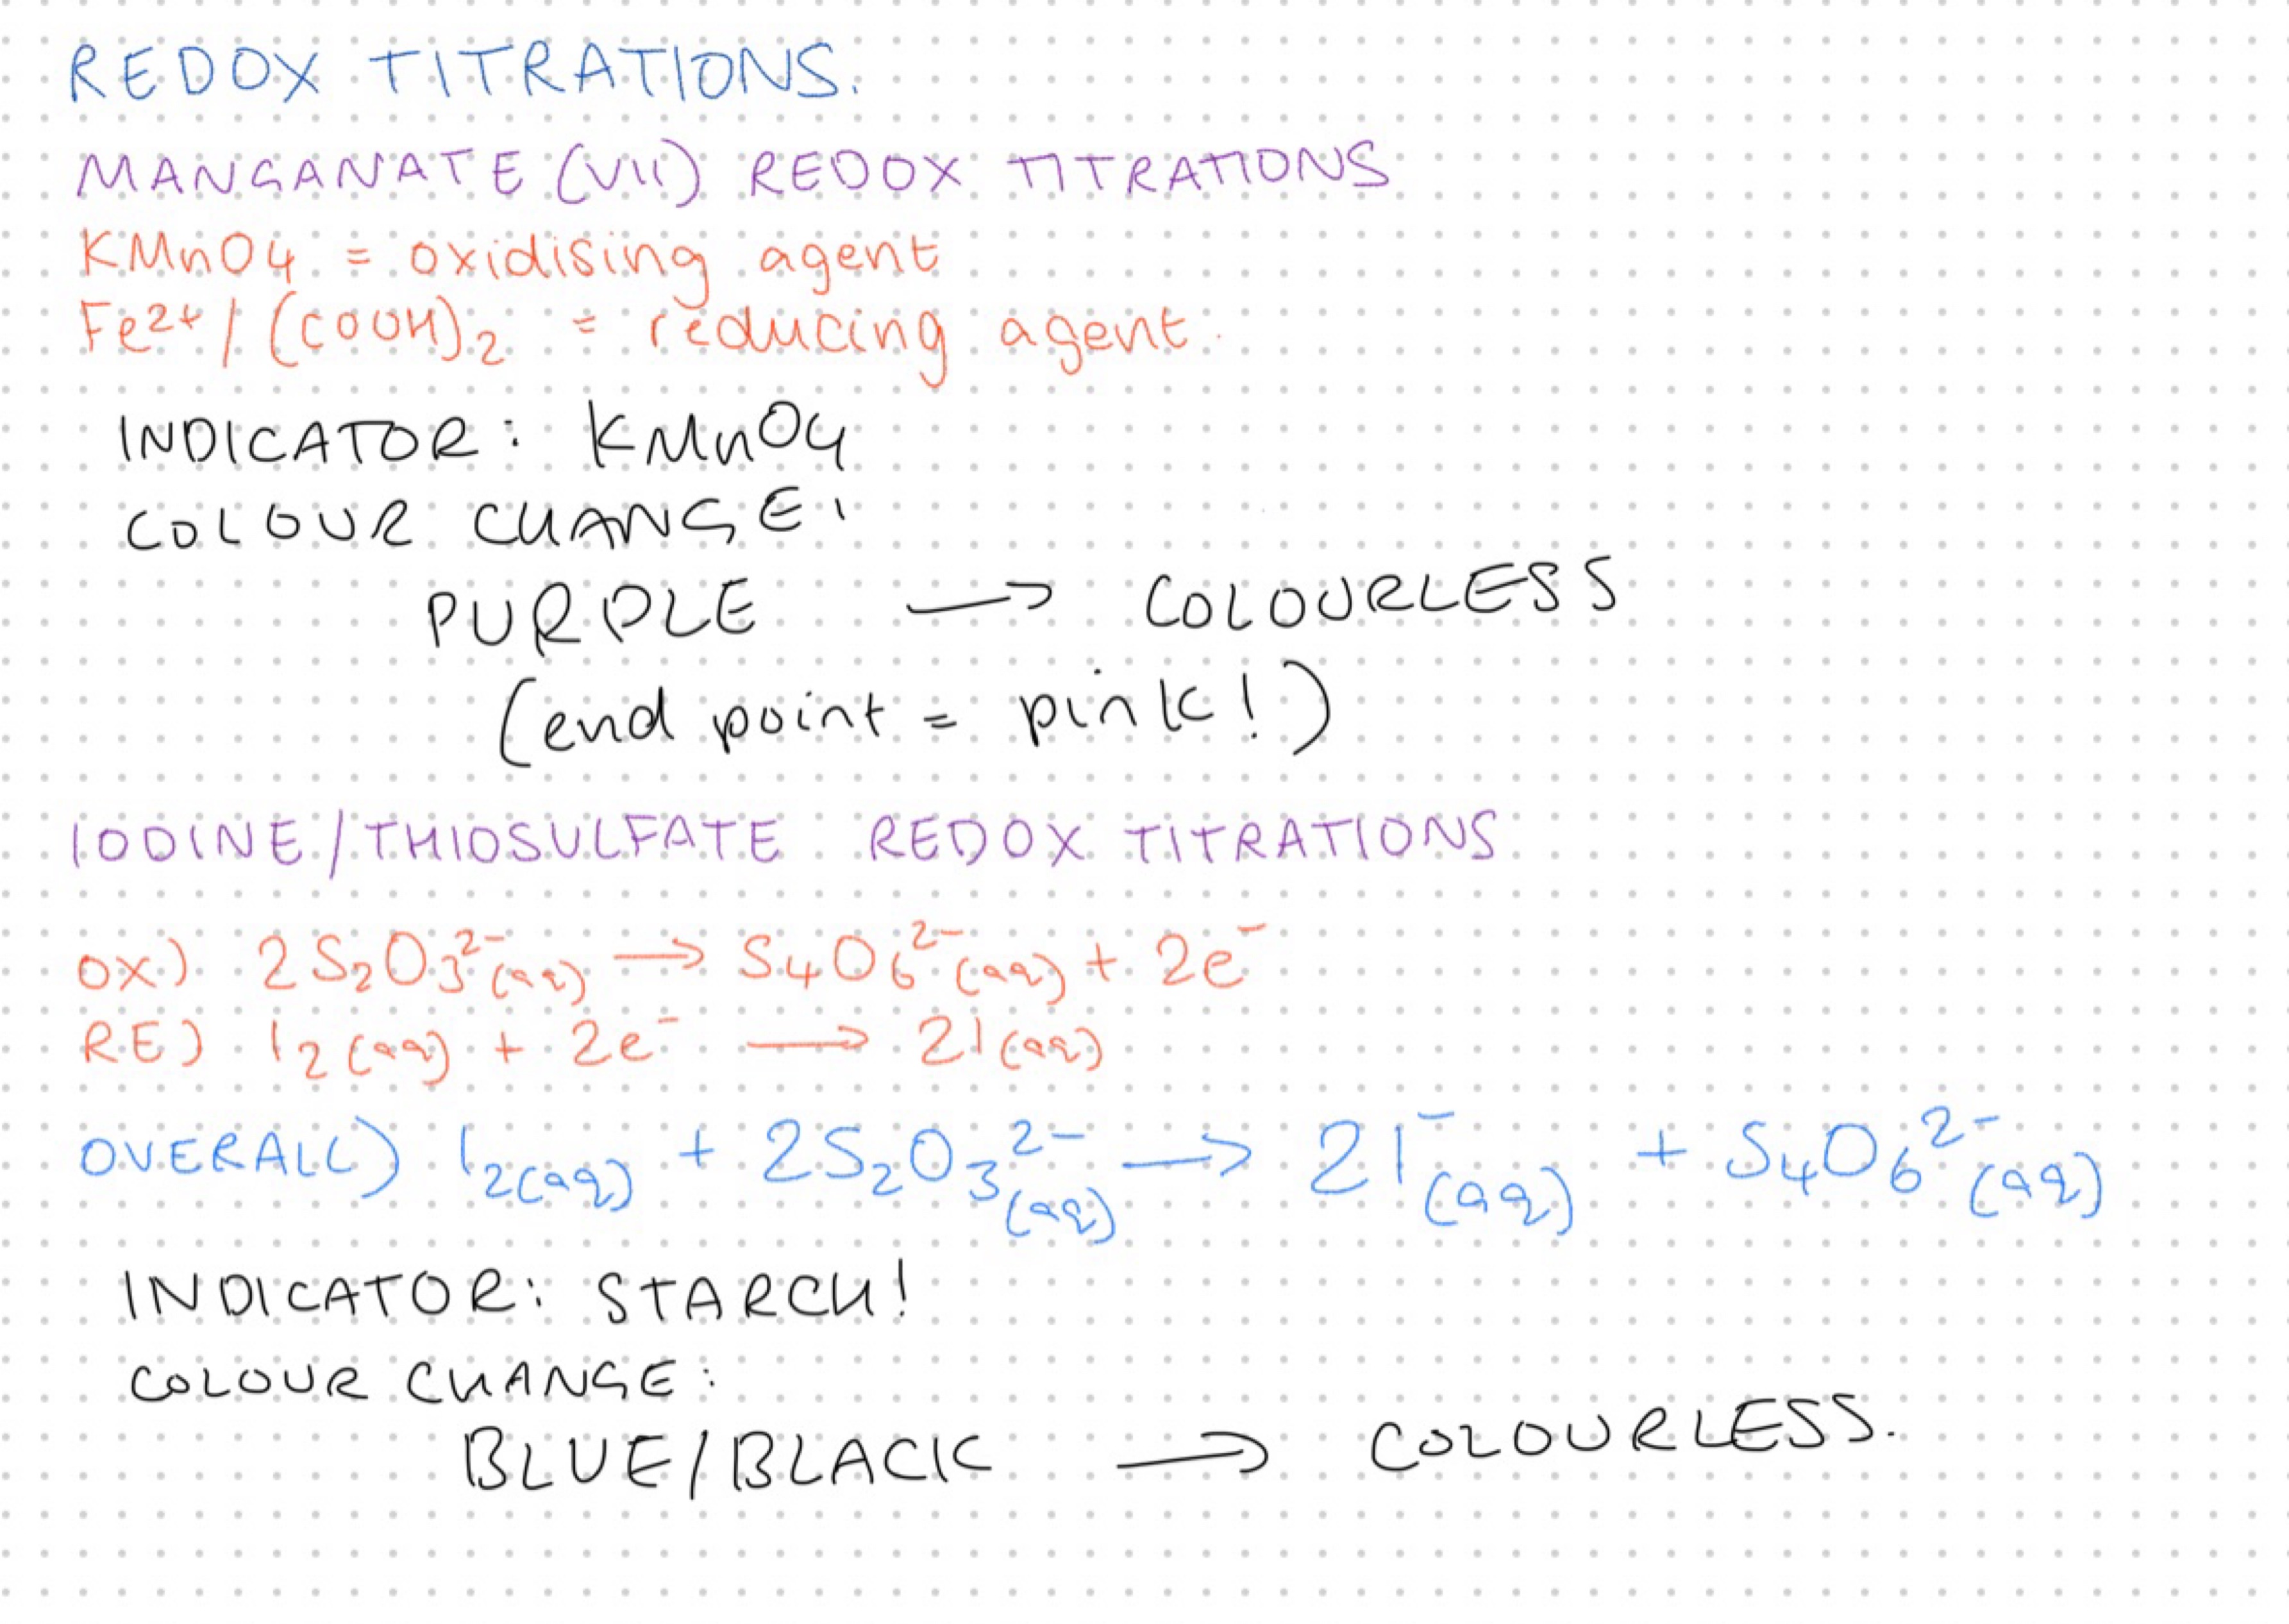 REDOX TITRATIONS.
MANGANATE (VII) REDOX TITRATIONS
KMnO4 = oxidising agent
Fe²⁺ / (COOH)₂ = reducing agent.
INDICATOR: KMnO4
COLOUR CHANGE:
PURPLE → COLOURLESS
(end point = pink!)
IODINE/THIOSULFATE REDOX TITRATIONS
OX) 2S₂O₃²⁻(aq) → S₄O₆²⁻(aq) + 2e⁻
RE) I₂(aq) + 2e⁻ → 2I(aq)
OVERALL) I₂(aq) + 2S₂O₃²⁻(aq) → 2I⁻(aq) + S₄O₆²⁻(aq)
INDICATOR: STARCH!
COLOUR CHANGE:
BLUE/BLACK → COLOURLESS.